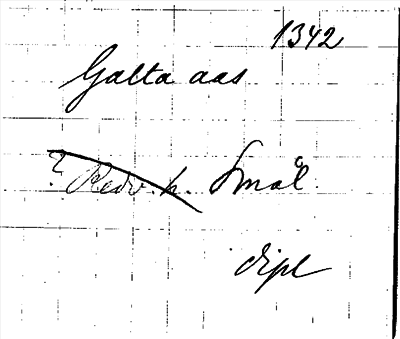 1342
Galta aas
? Redv. h. Smål.
dipl